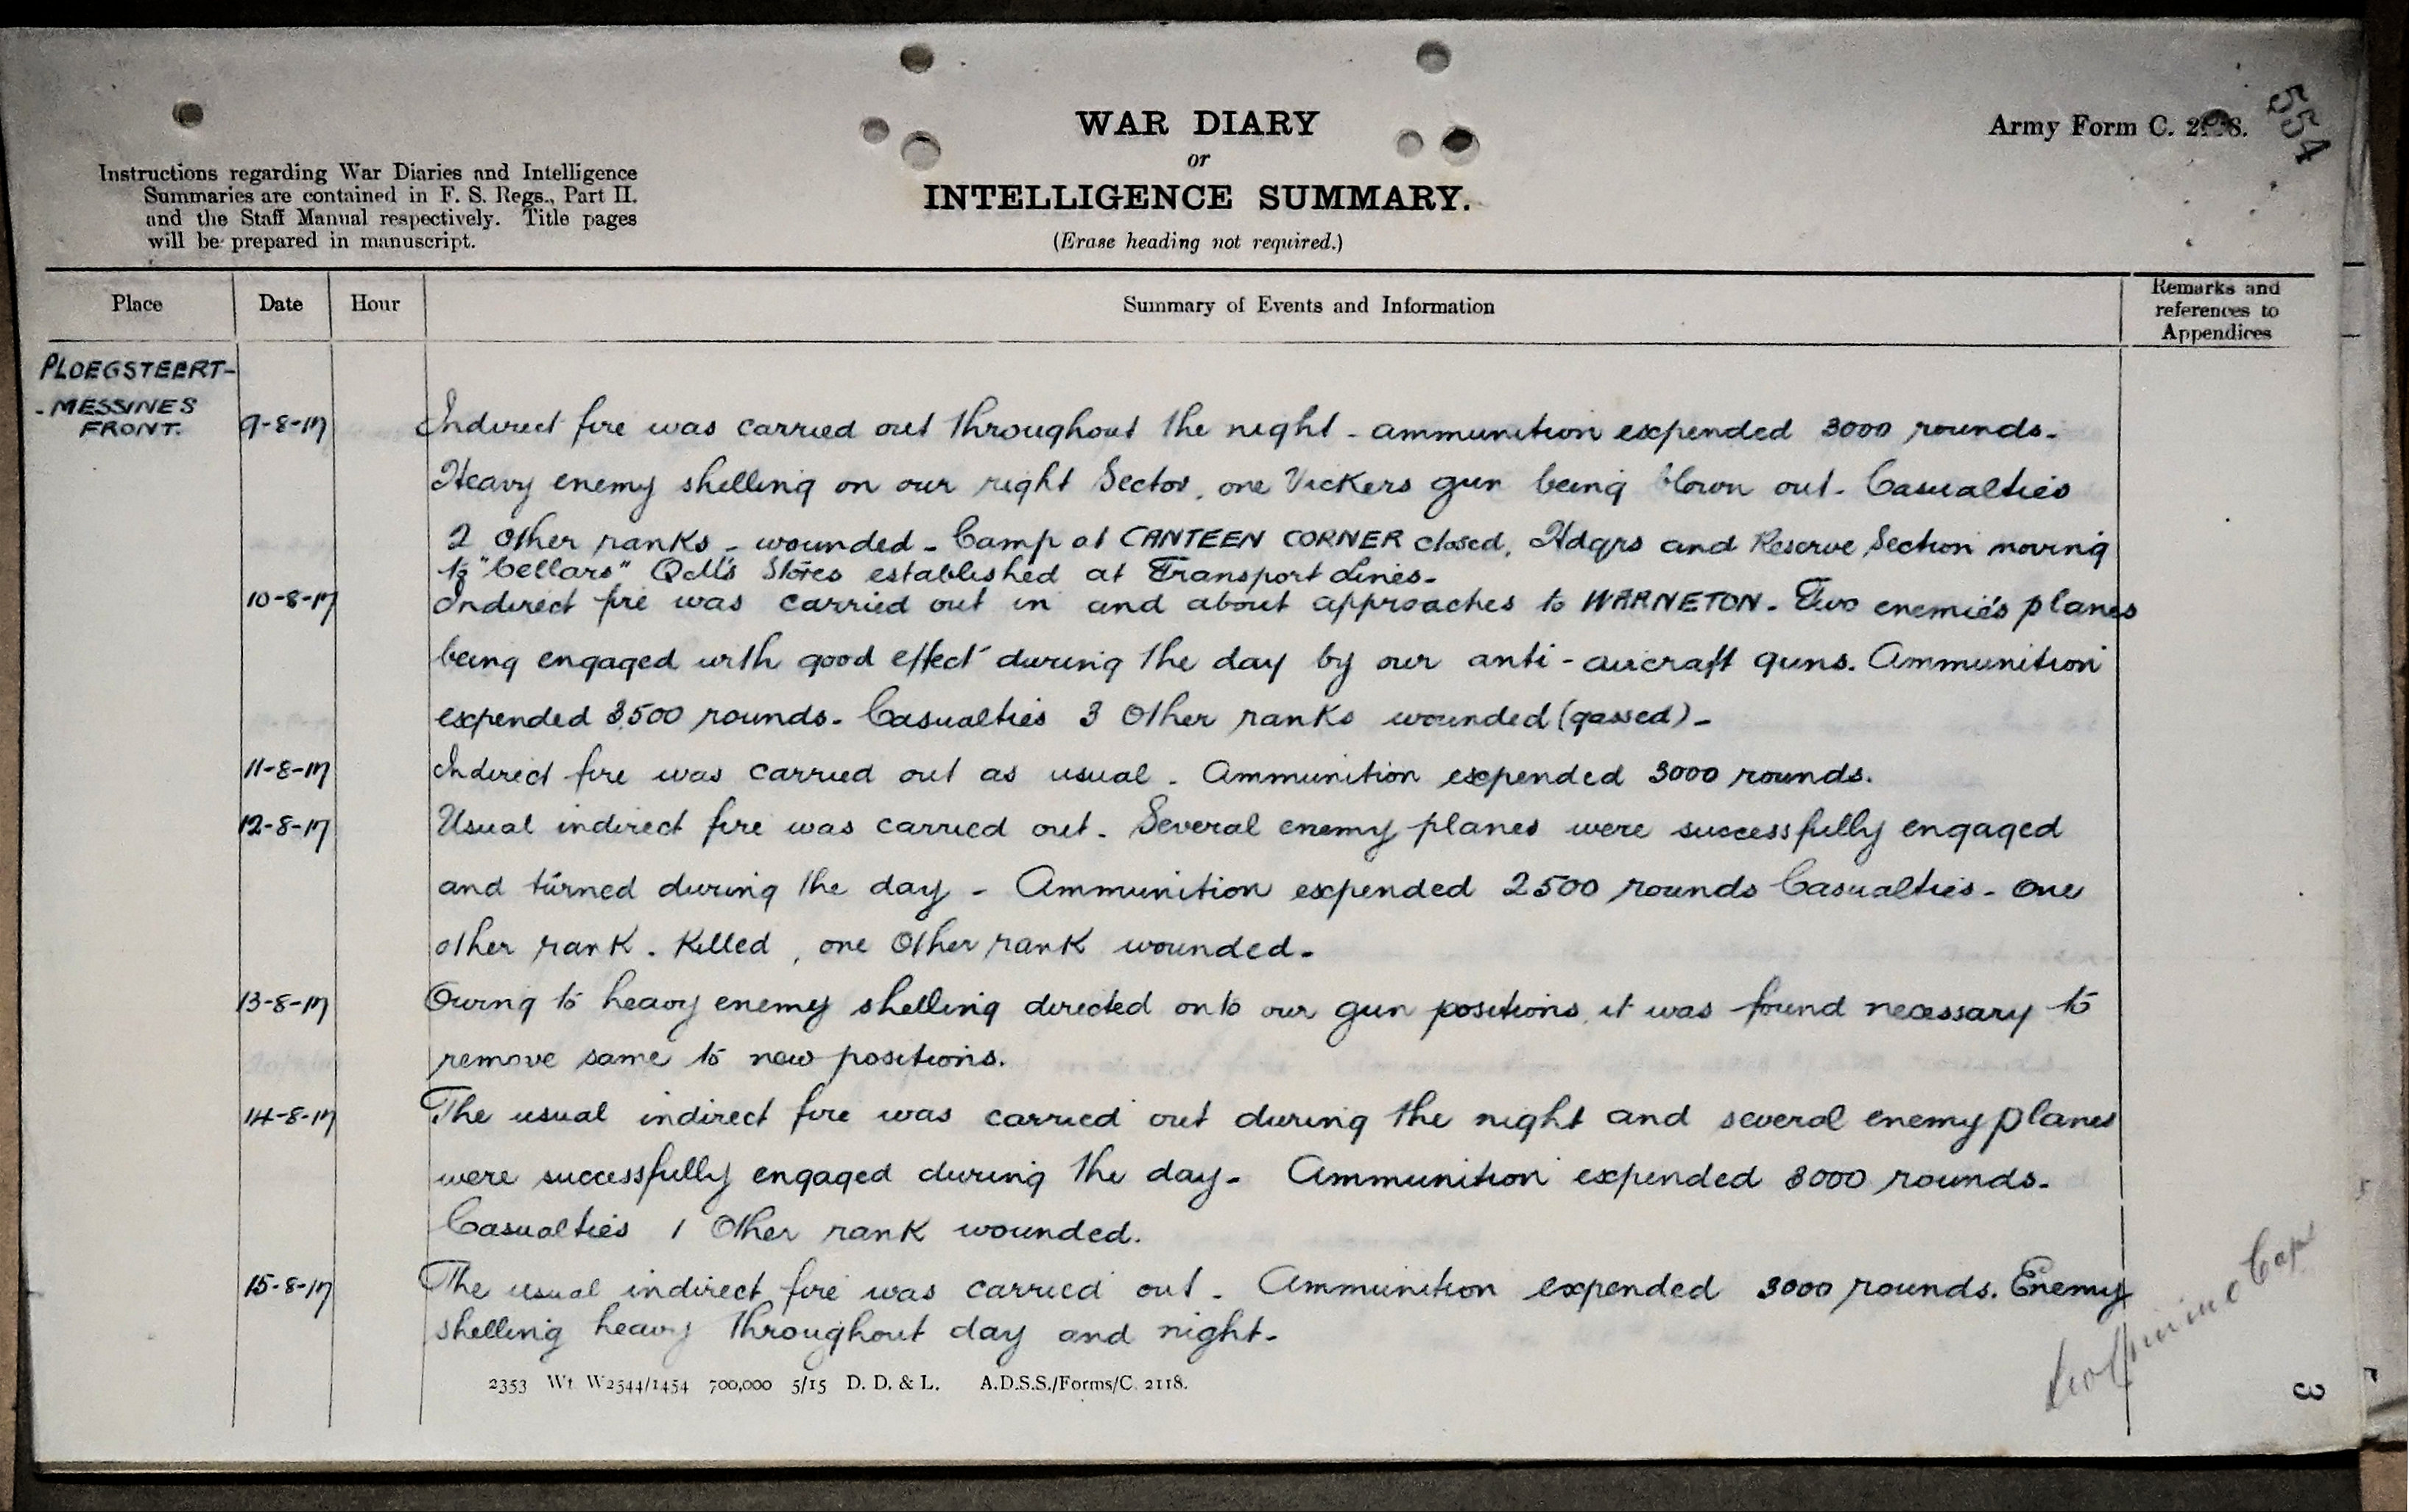 554
WAR DIARY
Army Form C.
or
Instructions regarding War Diaries and Intelligence
Summaries are contained in F. S. Regs., Part II.
and the Staff Manual respectively. Title pages
will be prepared in manuscript.
INTELLIGENCE SUMMARY.
(Erase heading not required.)
Place Date Hour Summary of Events and Information Remarks and
references to
Appendices
PLOEGSTEERT-
- MESSINES
FRONT.
9-8-17 Indirect fire was carried out throughout the night - ammunition expended 3000 rounds.
Heavy enemy shelling on our right Sector, one Vickers gun being blown out. Casualties
2 Other ranks - wounded - Camp at CANTEEN CORNER closed, Hdqrs and Reserve Section moving
to "Cellars" QM's Stores established at Transport Lines.
10-8-17 Indirect fire was carried out in and about approaches to WARNETON. Two enemie's planes
being engaged with good effect during the day by our anti-aircraft guns. Ammunition
expended 3500 rounds. Casualties 3 Other ranks wounded (gassed) -
11-8-17 Indirect fire was carried out as usual. Ammunition expended 3000 rounds.
12-8-17 Usual indirect fire was carried out. Several enemy planes were successfully engaged
and turned during the day - Ammunition expended 2500 rounds Casualties - One
other rank. Killed, one Other rank wounded.
13-8-17 Owing to heavy enemy shelling directed onto our gun positions, it was found necessary to
remove same to new positions.
14-8-17 The usual indirect fire was carried out during the night and several enemy planes
were successfully engaged during the day - Ammunition expended 3000 rounds.
Casualties 1 Other rank wounded.
15-8-17 The usual indirect fire was carried out. Ammunition expended 3000 rounds. Enemy
shelling heavy throughout day and night -
Capt
2353 Wt W2544/1454 700,000 5/15 D. D. & L. A.D.S.S./Forms/C. 2118.
3